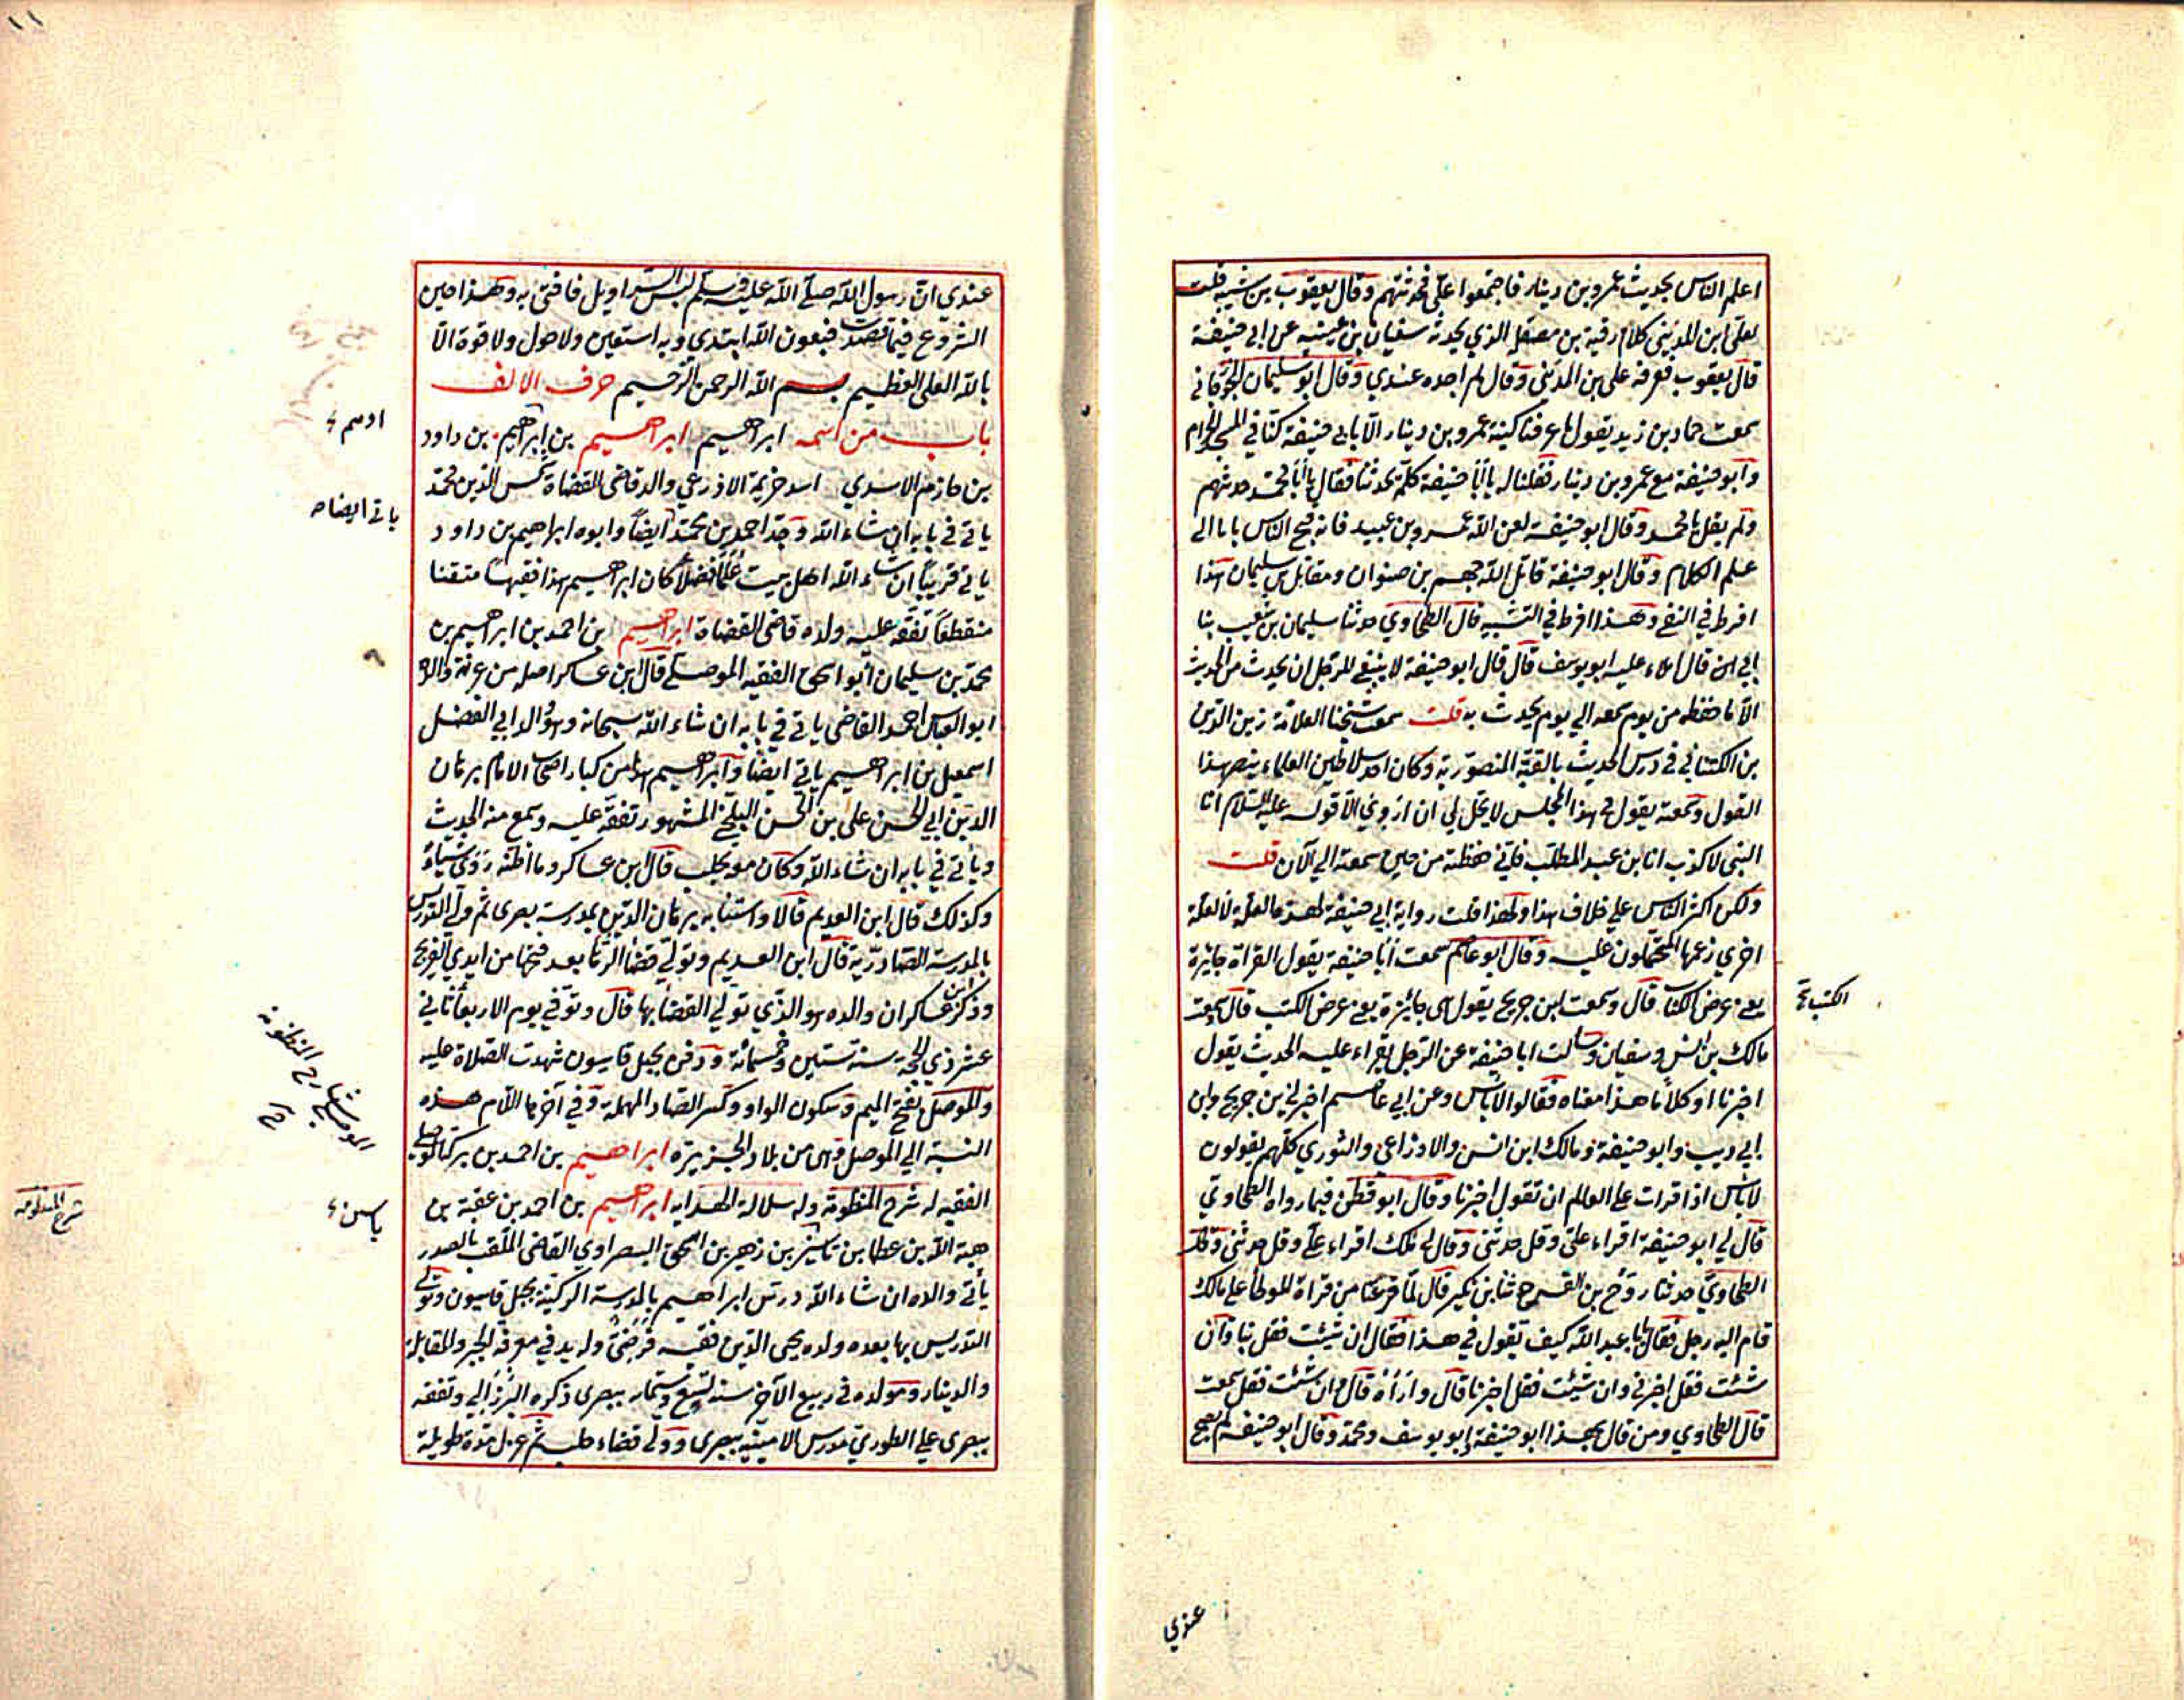 اعلم الناس بحديث عمرو بن دينار فاجتمعوا علي فحدثتهم وقال يعقوب بن شيبه قلت
لعلي ابن المديني كلام رقبة بن مصقل الذي يحدثه سفيان بن عيينه عن ابي حنيفة
قال يعقوب فعرفه علي بن المديني وقال لم اجده عندي وقال ابو سليمان الجوزقاني
سمعت حماد بن زيد يقول ما عرفنا كنية عمرو بن دينار الا بابي حنيفة كنا في المسجد الحرام
وابو حنيفة مع عمرو بن دينار فقلنا له يا ابا حنيفة كلمه يحدثنا فقال يا ابا محمد حدثهم
ولم يقل يا محمد وقال ابو حنيفة لعن الله عمرو بن عبيد فانه فتح الناس بابا الى
علم الكلام وقال ابو حنيفة قاتل الله جهم بن صفوان ومقاتل بن سليمان هذا
افرط في النفي وهذا افرط في التشبيه قال الطحاوي حدثنا سليمان بن شعيب ثنا
ابي قال املاء عليه ابو يوسف قال قال ابو حنيفة لا ينبغي للرجل ان يحدث من الحديث
الا ما حفظه من يوم سمعه الي يوم يحدث به قلت سمعت شيخنا العلامة زين الدين
بن الكتناني في درس الحديث بالقبة المنصورية وكان احد سلاطين العلماء ينصر هذا
القول وسمعته يقول في هذا المجلس لا يحل لي ان اروي الا قوله عليه السلام انا
النبي لا كذب انا ابن عبد المطلب فاني حفظته من حين سمعته الي الآن قلت
ولكن اكثر الناس علي خلاف هذا ولهذا قلت رواية ابي حنيفة لهذه العلة لا لعلة
اخري زعمها المتحملون عليه وقال ابو عاصم سمعت ابا حنيفة يقول القراة جايزة
يعني عرض الكتاب قال وسمعت ابن جريج يقول هي جايزة يعني عرض الكتب قال سمعت
مالك بن انس وسفيان وسالت ابا حنيفة عن الرجل يقراء عليه الحديث يقول
اخبرنا او كلاما هذا معناه فقالوا لا بأس وعن ابي عاصم اخبرني بن جريج وابن
ابي ذيب وابو حنيفة ومالك ابن انس والاوزاعي والثوري كلهم يقولون
لا باس اذا قرات علي العالم ان تقول اخبرنا وقال ابو قطن فيما رواه الطحاوي
قال لي ابو حنيفة اقراء علي وقل حدثني وقال لي ملك اقراء علي وقل حدثني وقال
الطحاوي حدثنا روح بن الفرج ثنا ابن بكير قال لما فرغنا من قراة الموطأ علي مالك
قام اليه رجل فقال يا ابا عبد الله كيف تقول في هذا فقال ان شئت فقل ثنا وان
شئت فقل اخبرني وان شئت فقل اخبرنا قال واراه قال وان شئت فقل سمعت
قال الطحاوي ومن قال بهذا ابو حنيفة وابو يوسف ومحمد وقال ابو حنيفة لم يصح
الكتب
عندي
١١
عندي ان رسول الله صلى الله عليه وسلم لبس السراويل فافتى به وهذا حين
الشروع فيما قصدت فبعون الله ابتدي وبه استعين ولا حول ولا قوة الا
بالله العلي العظيم بسم الله الرحمن الرحيم حرف الالف
باب من اسمه ابراهيم ابراهيم بن ابراهيم بن داود
بن حازم الاسدي اسد خزيمة الاذرعي والد قاضي القضاة شمس الدين محمد
ياتي في بابه ان شاء الله وجد احمد بن محمد ايضا وابوه ابراهيم بن داود
ياتي قريبا ان شاء الله اهل بيت علما فضلا كان ابراهيم هذا فقيها متقنا
منقطعا تفقه عليه ولده قاضي القضاة ابراهيم بن احمد بن ابراهيم بن
محمد بن سليمان ابو اسحق الفقيه الموصلي قال ابن عساكر اصله من غزنة والد
ابو العباس احمد القاضي ياتي في بابه ان شاء الله سبحانه وهو والد ابي الفضل
اسمعيل بن ابراهيم ياتي ايضا وابراهيم هذا من كبار اصحاب الامام برهان
الدين ابي الحسن علي بن الحسن البلخي المشهور تفقه عليه وسمع منه الحديث
وياتي في بابه ان شاء الله وكان معه بحلب قال ابن عساكر وما اظنه روى شيئا
وكذلك قال ابن العديم قالا واستنابه برهان الدين بمدرسة بصرى ثم ولي التدريس
بالمدرسة الصادرية قال ابن العديم وتولي قضا الرها بعد فتحها من ايدي الفرنج
وذكر ابن عساكر ان والده هو الذي تولي القضا بها قال وتوفي يوم الاربعا ثاني
عشر ذي الحجة سنة ستين وخمسمائة ودفن بجبل قاسيون شهدت الصلاة عليه
والموصل بفتح الميم وسكون الواو وكسر الصاد المهملة وفي آخرها اللام هذه
النسبة الي الموصل وهي من بلاد الجزيرة ابراهيم بن احمد بن بركة الموصلي
الفقيه له شرح المنظومة وله سلالة الهدايه ابراهيم بن احمد بن عقبة بن
هبة الله بن عطا بن ياسين بن زهير بن اسحق البصراوي القاضي الملقب بالصدر
يأتي والده ان شاء الله درس ابراهيم بالمدرسة الركنية بجبل قاسيون وتولي
التدريس بها بعده ولده يحيى الدين فقيه فرضي وله يد في معرفة الجبر والمقابلة
والدينار ومولده في ربيع الآخر سنة تسع وستمايه ببصرى ذكره البرزالي وتفقه
ببصرى علي الطوري مدرس الامينيه ببصرى وولي قضاء حلب ثم عزل مدة طويلة
ادهم
ياتي ايضا
الموصلي شارح المنظومة
شرح المنظومه
ياسين